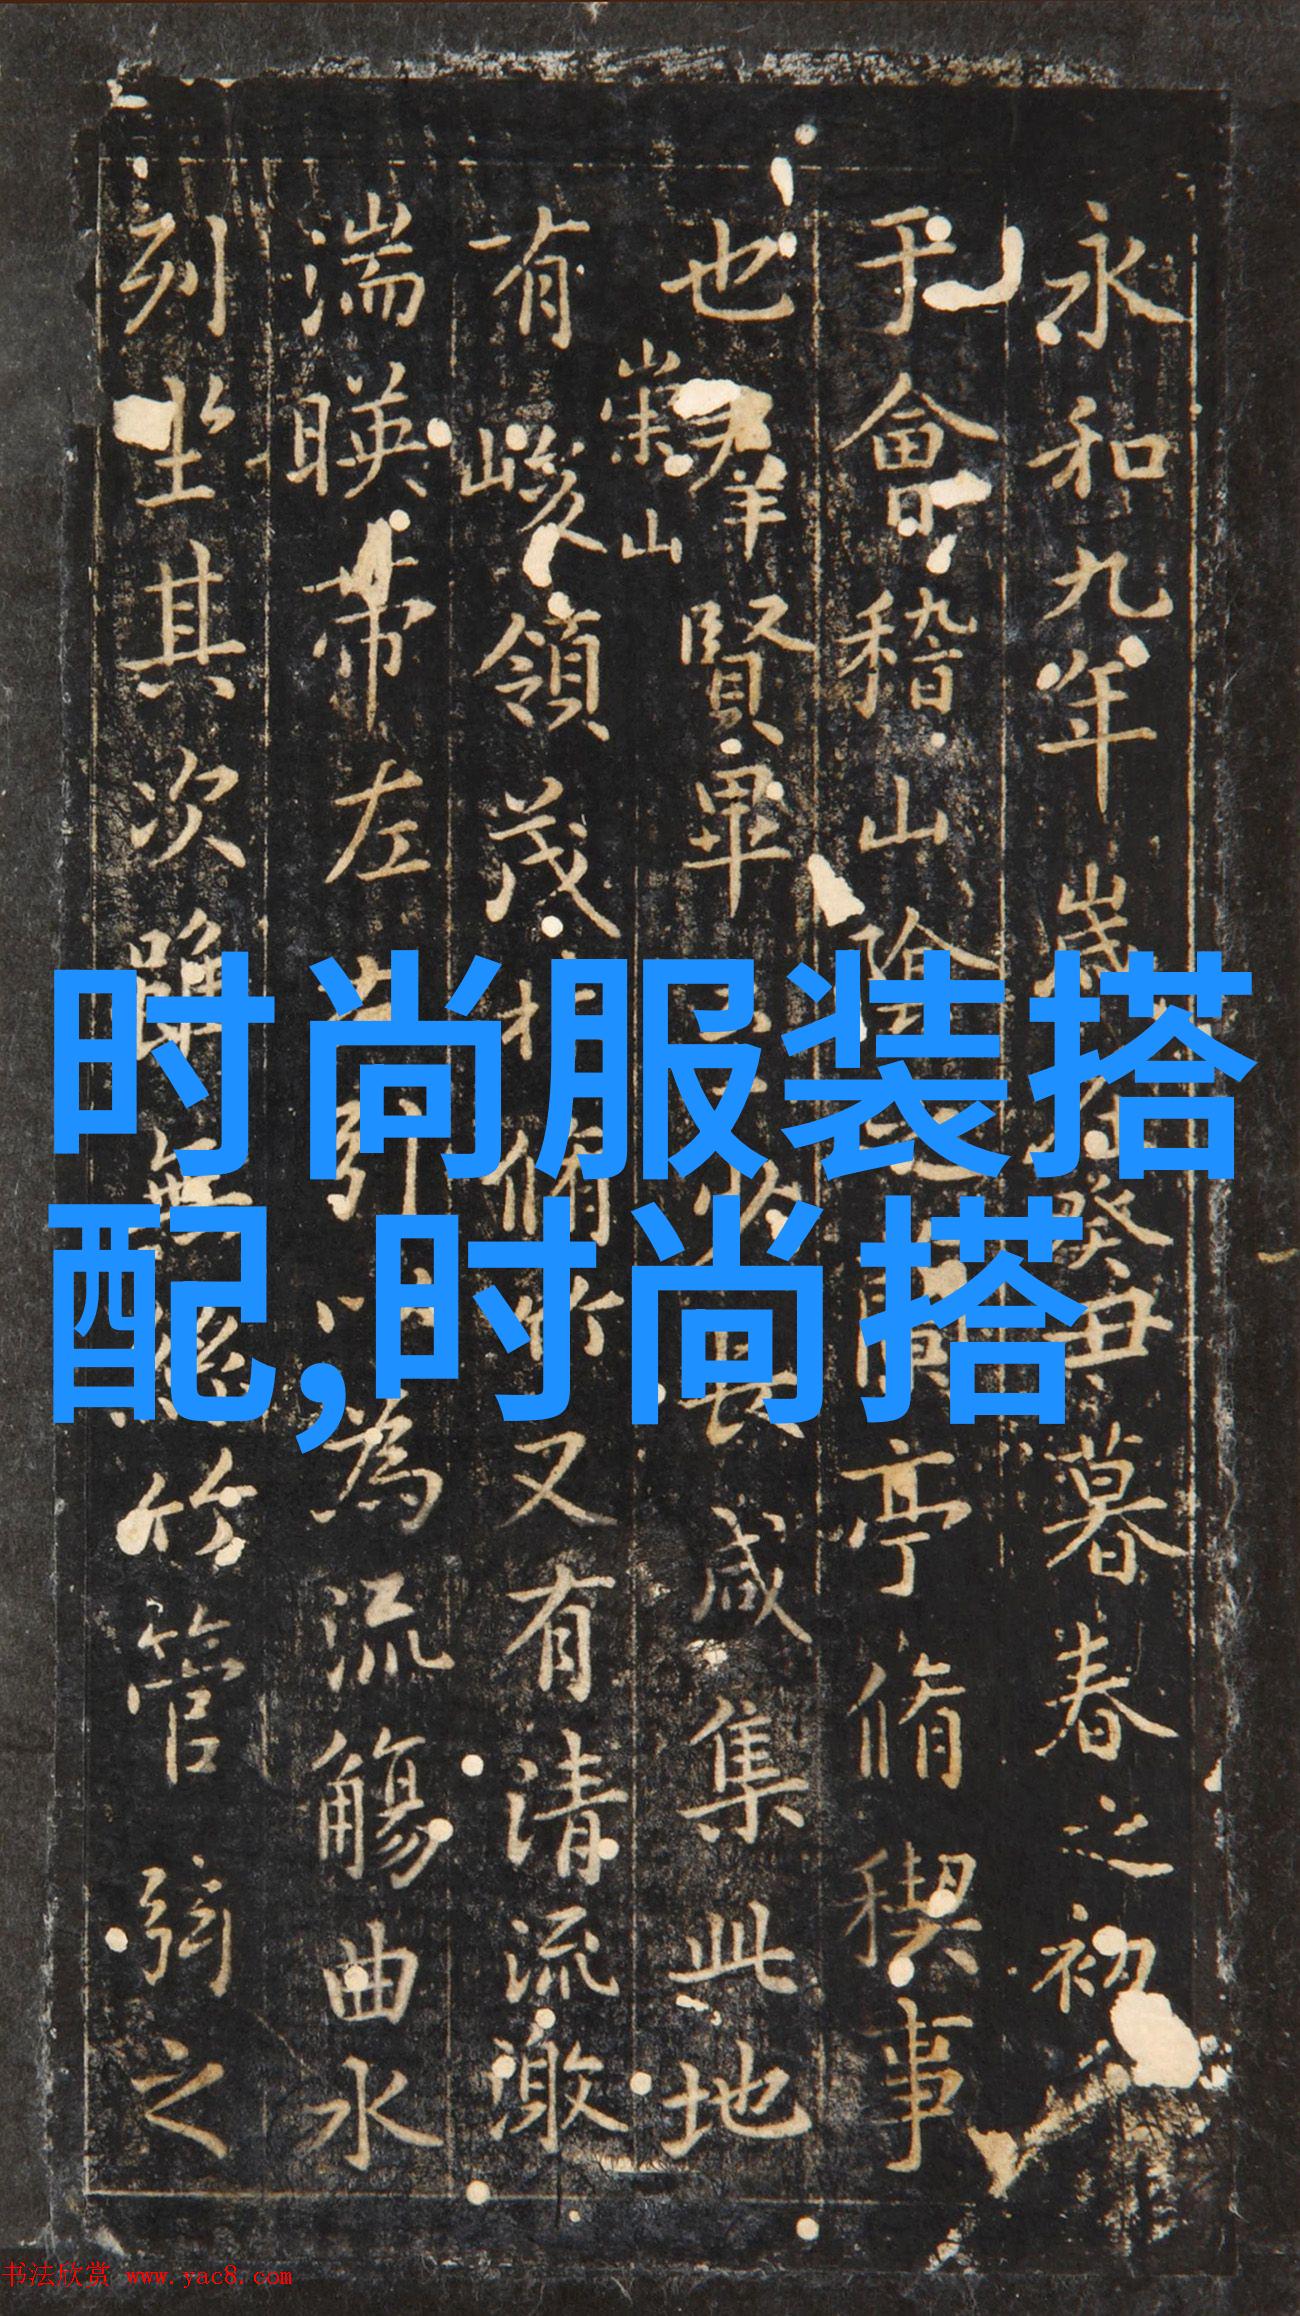 永和九年歲在癸丑暮春之初
于會稽山陰之蘭亭脩稧事
也羣賢畢至少長咸集此地
崇山
有峻領茂林脩竹又有清流激
湍暎帶左右引以為流觴曲水
列坐其次雖無絲竹管弦之
时尚服装搭
配,时尚搭
书法欣赏 www.yac8.com